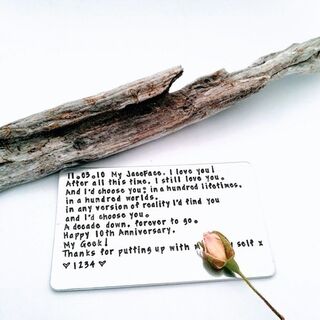 11.05.10 My JaceFace. I love you!
After all this time. I still love you.
And I'd choose you; in a hundred lifetimes.
in a hundred worlds.
in any version of reality I'd find you
and I'd choose you.
A decade down. forever to go.
Happy 10th Anniversary.
My Geek!
Thanks for putting up with self x
♡1234♡